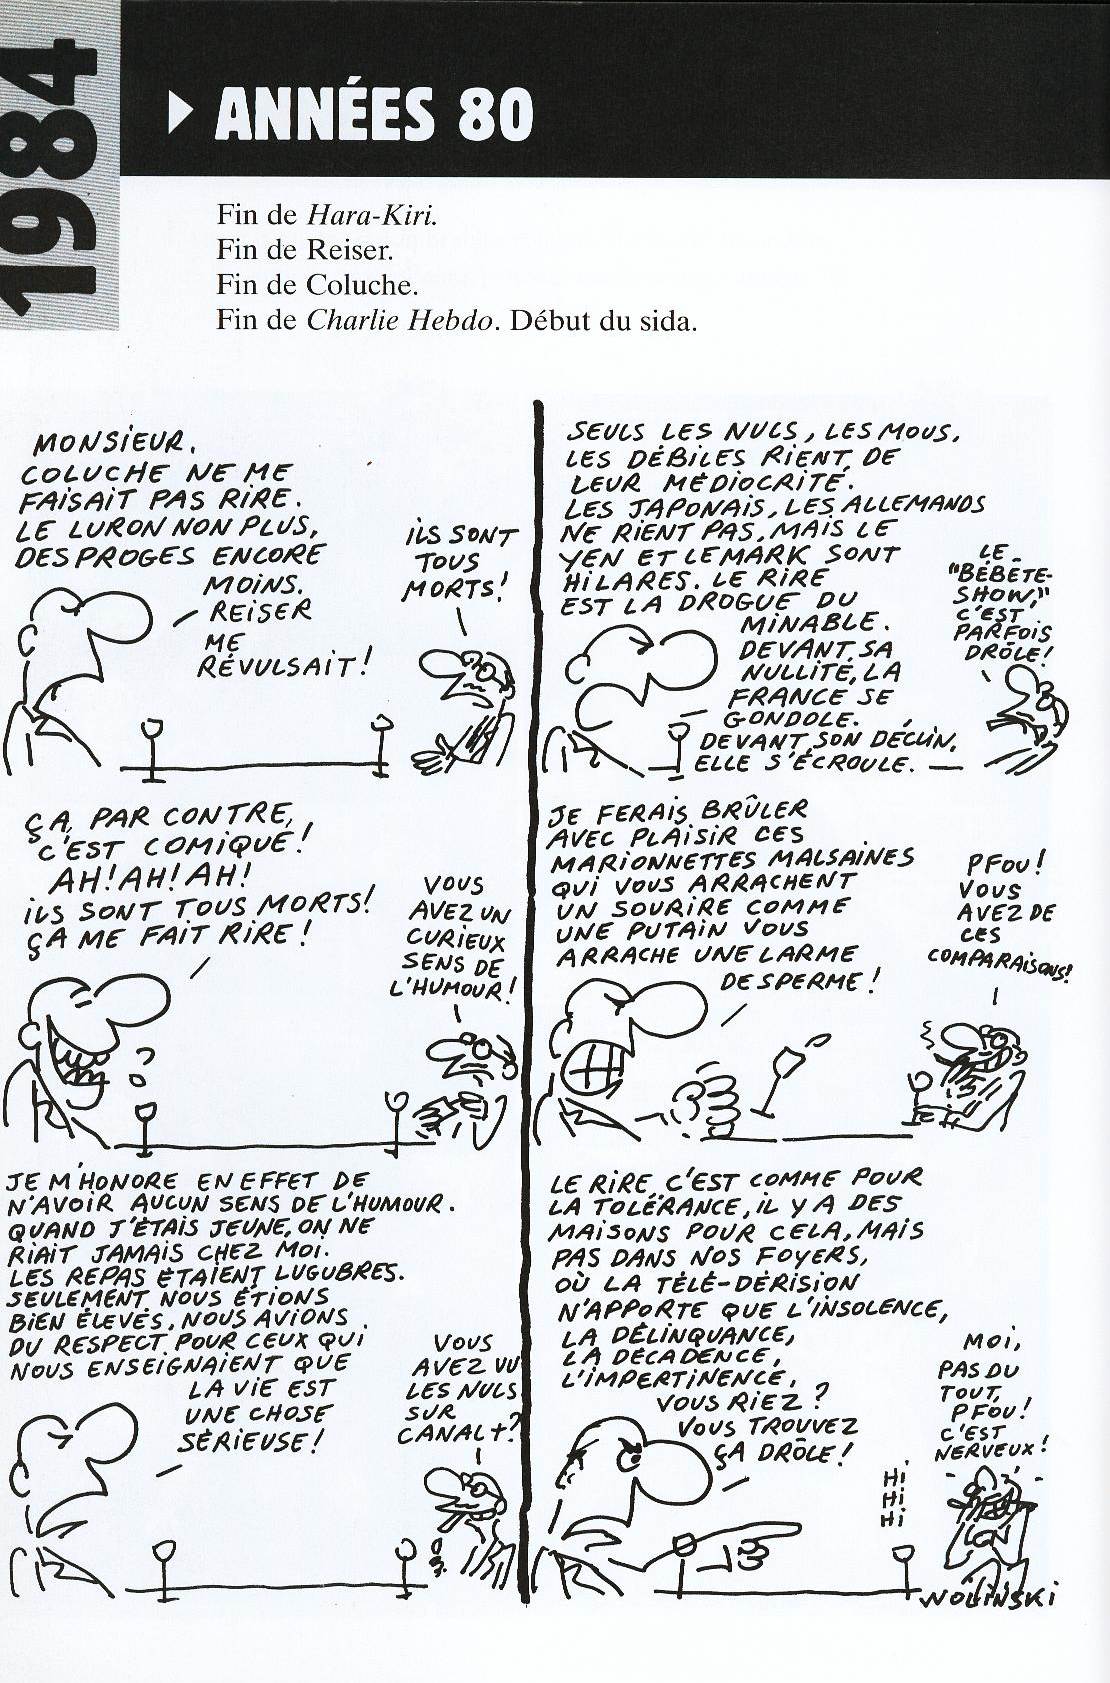 1984
ANNÉES 80
Fin de Hara-Kiri.
Fin de Reiser.
Fin de Coluche.
Fin de Charlie Hebdo. Début du sida.
MONSIEUR,
COLUCHE NE ME
FAISAIT PAS RIRE.
LE LURON NON PLUS,
DESPROGES ENCORE
MOINS.
REISER
ME
RÉVULSAIT!
ILS SONT
TOUS
MORTS!
ÇA, PAR CONTRE,
C'EST COMIQUE!
AH! AH! AH!
ILS SONT TOUS MORTS!
ÇA ME FAIT RIRE!
VOUS
AVEZ UN
CURIEUX
SENS DE
L'HUMOUR!
JE M'HONORE EN EFFET DE
N'AVOIR AUCUN SENS DE L'HUMOUR.
QUAND J'ÉTAIS JEUNE, ON NE
RIAIT JAMAIS CHEZ MOI.
LES REPAS ÉTAIENT LUGUBRES.
SEULEMENT NOUS ÉTIONS
BIEN ÉLEVÉS, NOUS AVIONS
DU RESPECT POUR CEUX QUI
NOUS ENSEIGNAIENT QUE
LA VIE EST
UNE CHOSE
SÉRIEUSE!
VOUS
AVEZ VU
LES NULS
SUR
CANAL+?
SEULS LES NULS, LES MOUS,
LES DÉBILES RIENT DE
LEUR MÉDIOCRITÉ.
LES JAPONAIS, LES ALLEMANDS
NE RIENT PAS, MAIS LE
YEN ET LE MARK SONT
HILARES. LE RIRE
EST LA DROGUE DU
MINABLE.
DEVANT SA
NULLITÉ, LA
FRANCE SE
GONDOLE.
DEVANT SON DÉCLIN,
ELLE S'ÉCROULE.
LE
"BÉBÊTE-
SHOW,"
C'EST
PARFOIS
DRÔLE!
JE FERAIS BRÛLER
AVEC PLAISIR CES
MARIONNETTES MALSAINES
QUI VOUS ARRACHENT
UN SOURIRE COMME
UNE PUTAIN VOUS
ARRACHE UNE LARME
DE SPERME!
PFOU!
VOUS
AVEZ DE
CES
COMPARAISONS!
LE RIRE, C'EST COMME POUR
LA TOLÉRANCE, IL Y A DES
MAISONS POUR CELA, MAIS
PAS DANS NOS FOYERS,
OÙ LA TÉLÉ-DÉRISION
N'APPORTE QUE L'INSOLENCE,
LA DÉLINQUANCE,
LA DÉCADENCE,
L'IMPERTINENCE,
VOUS RIEZ?
VOUS TROUVEZ
ÇA DRÔLE!
MOI,
PAS DU
TOUT,
PFOU!
C'EST
NERVEUX!
HI
HI
HI
WOLINSKI